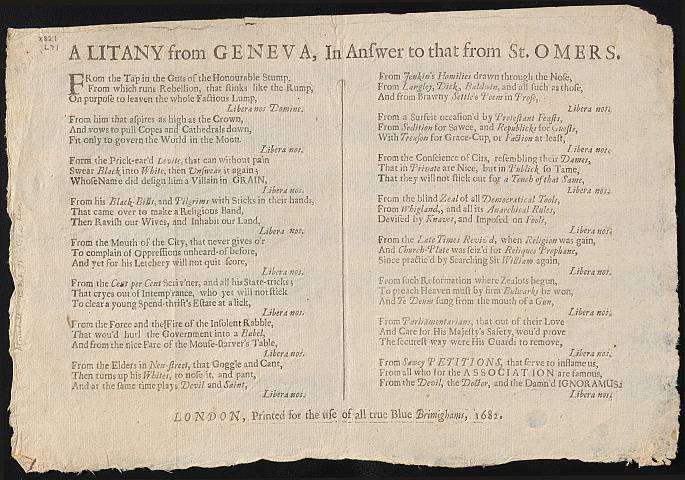 A LITANY from GENEVA, In Anſwer to that from St. OMERS.
FRom the Tap in the Guts of the Honourable Stump,
From which runs Rebellion, that ſtinks like the Rump,
On purpoſe to leaven the whole Factious Lump,
Libera nos Domine.
From him that aſpires as high as the Crown,
And vows to pull Copes and Cathedrals down,
Fit only to govern the World in the Moon.
Libera nos.
Form the Prick-ear'd Levite, that can without pain
Swear Black into White, then Unſwear it again;
Whoſe Name did deſign him a Villain in GRAIN,
Libera nos.
From his Black-Bills, and Pilgrims with Sticks in their hands,
That came over to make a Religious Band,
Then Raviſh our Wives, and Inhabit our Land,
Libera nos.
From the Mouth of the City, that never gives o'r
To complain of Oppreſſions unheard-of before,
And yet for his Letchery will not quit ſcore,
Libera nos.
From the Cent per Cent Scriv'ner, and all his State-tricks;
That cryes out of Intemp'rance, who yet will not ſtick
To clear a young Spend-thrift's Eſtate at a lick,
Libera nos.
From the Force and the Fire of the Inſolent Rabble,
That wou'd hurl the Government into a Babel,
And from the nice Fare of the Mouſe-ſtarver's Table,
Libera nos.
From the Elders in New-ſtreet, that Goggle and Cant,
Then turns up his Whites, to noſe it, and pant,
And at the ſame time plays Devil and Saint,
Libera nos.
From Jenkin's Homilies drawn through the Noſe,
From Langley, Dick, Baldwin, and all ſuch as thoſe,
And from Brawny Settle's Poem in Proſe,
Libera nos.
From a Surfeit occaſion'd by Proteſtant Feaſts,
From Sedition for Sawce, and Republicks for Gueſts,
With Treaſon for Grace-Cup, or Faction at leaſt,
Libera nos.
From the Conſcience of Cits, reſembling their Dames,
That in Private are Nice, but in Publick ſo Tame,
That they will not ſtick out for a Touch of that Same,
Libera nos.
From the blind Zeal of all Democratical Tools,
From Whigland, and all its Anarchical Rules,
Deviſed by Knaves, and Impoſed on Fools,
Libera nos.
From the Late Times Reviv'd, when Religion was gain,
And Church-Plate was ſeiz'd for Reliques Prophane,
Since practic'd by Searching Sir William again,
Libera nos.
From ſuch Reformation where Zealots begun,
To preach Heaven muſt by firm Bulwarks be won,
And Te Deum ſung from the mouth of a Gun,
Libera nos.
From Parliamentarians, that out of their Love
And Care for His Majeſty's Safety, wou'd prove
The ſecureſt way were His Guards to remove,
Libera nos.
From Sawcy PETITIONS, that ſerve to inflame us,
From all who for the ASSOCIATION are famous,
From the Devil, the Doctor, and the Damn'd IGNORAMUS:
Libera nos.
LONDON, Printed for the uſe of all true Blue Brimighams, 1682.